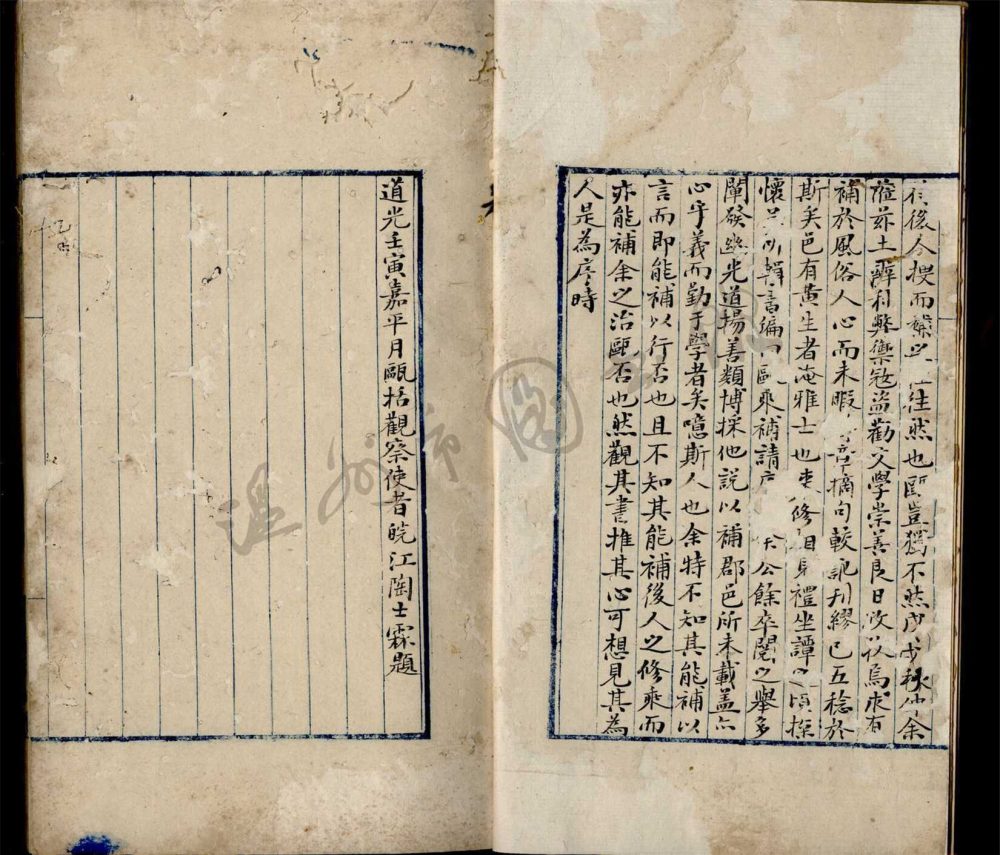 後人搜而補之往往然也甌豈獨不然戊戌秋仲余
蒞茲土釐利弊禦寇盜勸文學崇善良日孜孜焉求有
補於風俗人心而未暇章摘句較訛刊繆已五稔於
斯矣邑有黃生者淹雅士也束修自見禮坐譚之頃探
懷出所輯書編曰甌乘補請序公餘卒閱之舉多
闡發幽光道揚善類博採他說以補郡邑所未載蓋亦
心乎義而勤于學者矣噫斯人也余特不知其能補以
言而即能補以行否也且不知其能補後人之修乘而
亦能補余之治甌否也然觀其書推其心可想見其為
人是為序時
道光壬寅嘉平月甌括觀察使者皖江陶士霖題
溫州市圖